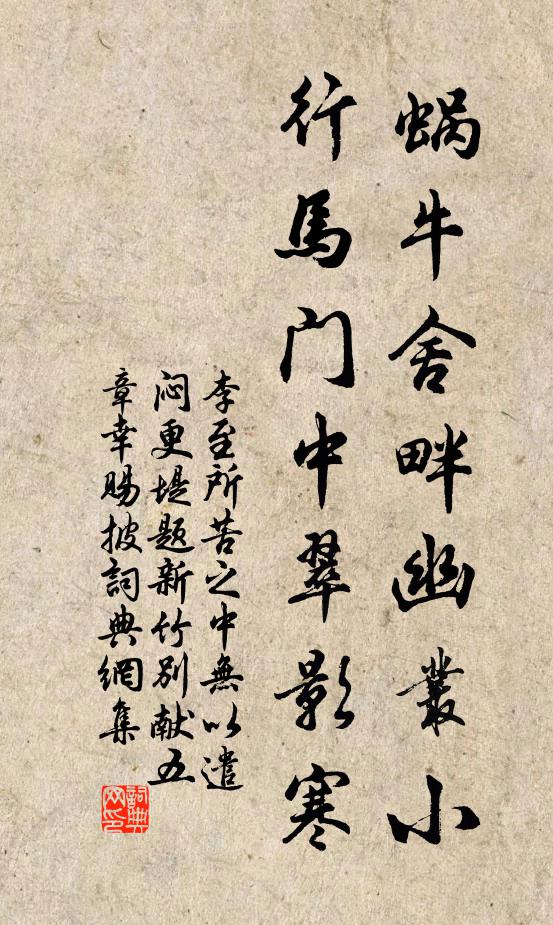 蜗牛舍畔幽叢小
行馬门中翠影寒
李至所苦之中無以遣
闷更堤题新竹别献五
章幸賜披詞典網集
詞典网印